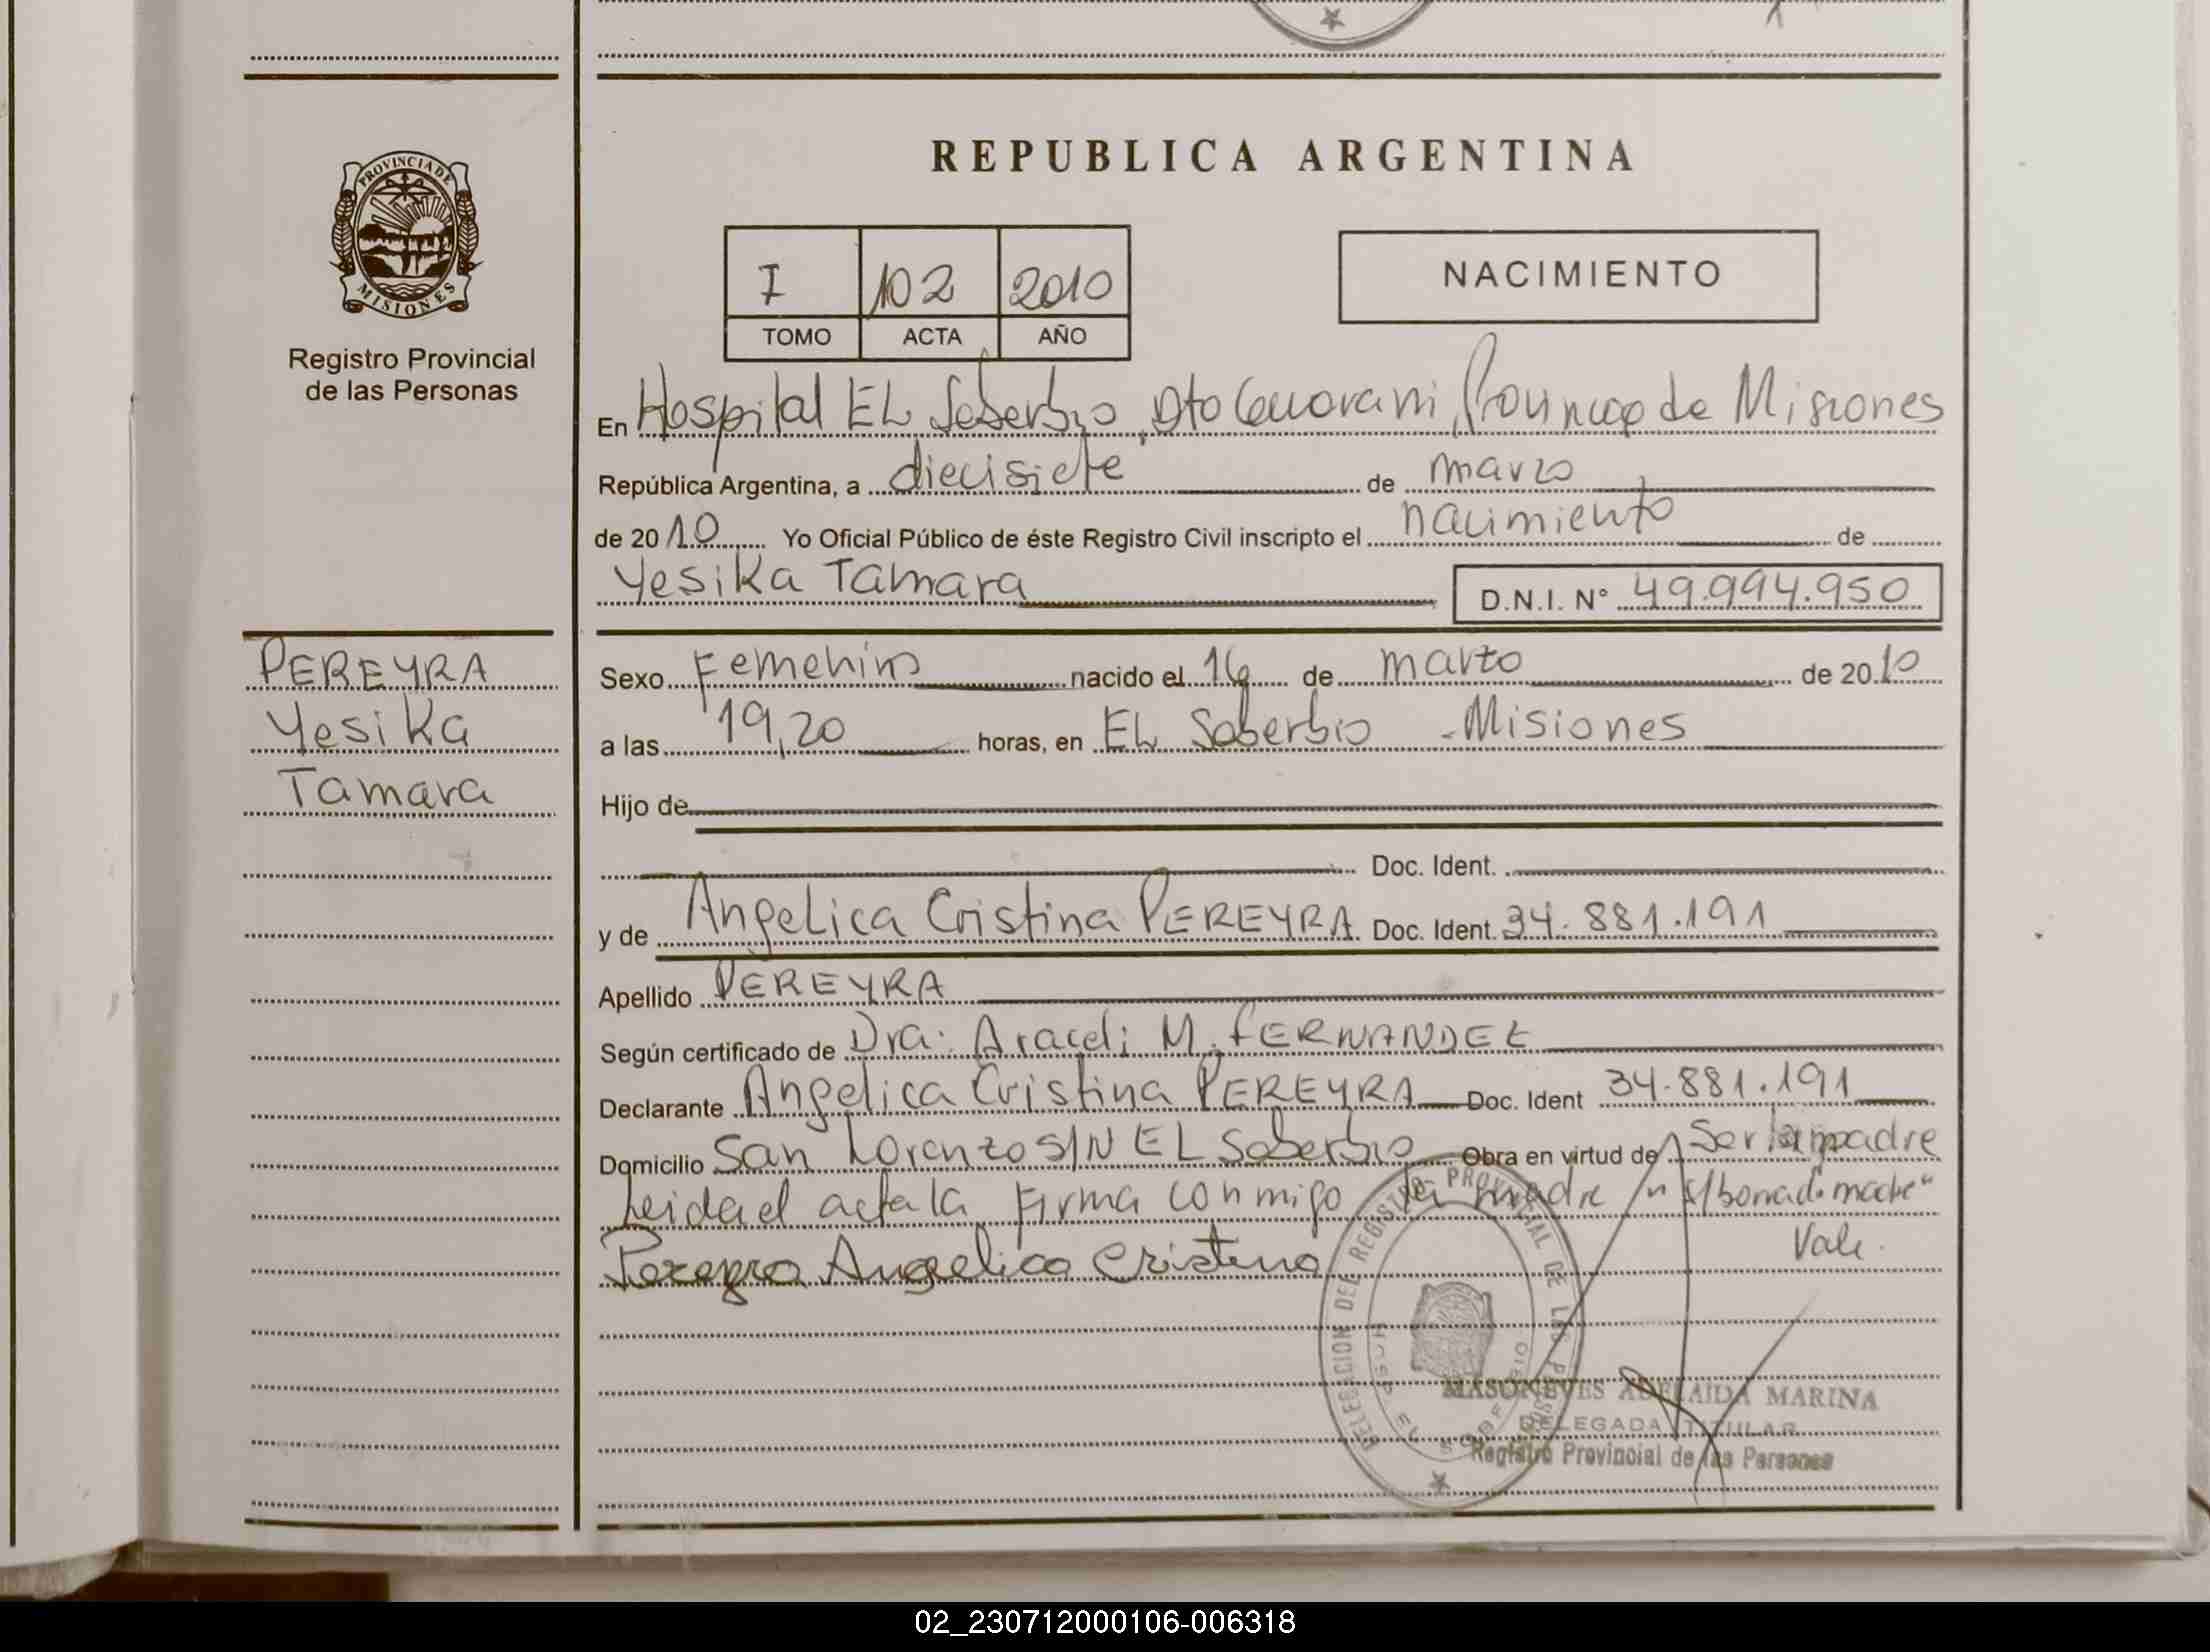 REPUBLICA ARGENTINA
PROVINCIA DE
MISIONES
Registro Provincial
de las Personas
I 102 2010
TOMO ACTA AÑO
NACIMIENTO
En Hospital EL Soberbio, Dto Guarani, Provincia de Misiones
República Argentina, a diecisiete de marzo
de 2010 Yo Oficial Público de éste Registro Civil inscripto el nacimiento de
Yesika Tamara D.N.I. N° 49.994.950
PEREYRA
Yesika
Tamara
Sexo Femenino nacido el 16 de marzo de 2010
a las 19,20 horas, en EL Soberbio - Misiones
Hijo de
Doc. Ident.
y de Angelica Cristina PEREYRA Doc. Ident. 34.881.191
Apellido PEREYRA
Según certificado de Dra: Araceli M. FERNANDEZ
Declarante Angelica Cristina PEREYRA Doc. Ident 34.881.191
Domicilio San Lorenzo S/N EL Soberbio Obra en virtud de Ser la madre
Leida el acta la firma conmigo la madre s/borrado "madre"
Vale.
Pereyra Angelica Cristina
DELEGACION DEL REGISTRO PROVINCIAL DE LAS PERSONAS
SOBERBIO
ADELAIDA MARINA
DELEGADA TITULAR
Registro Provincial de las Personas
02_230712000106-006318